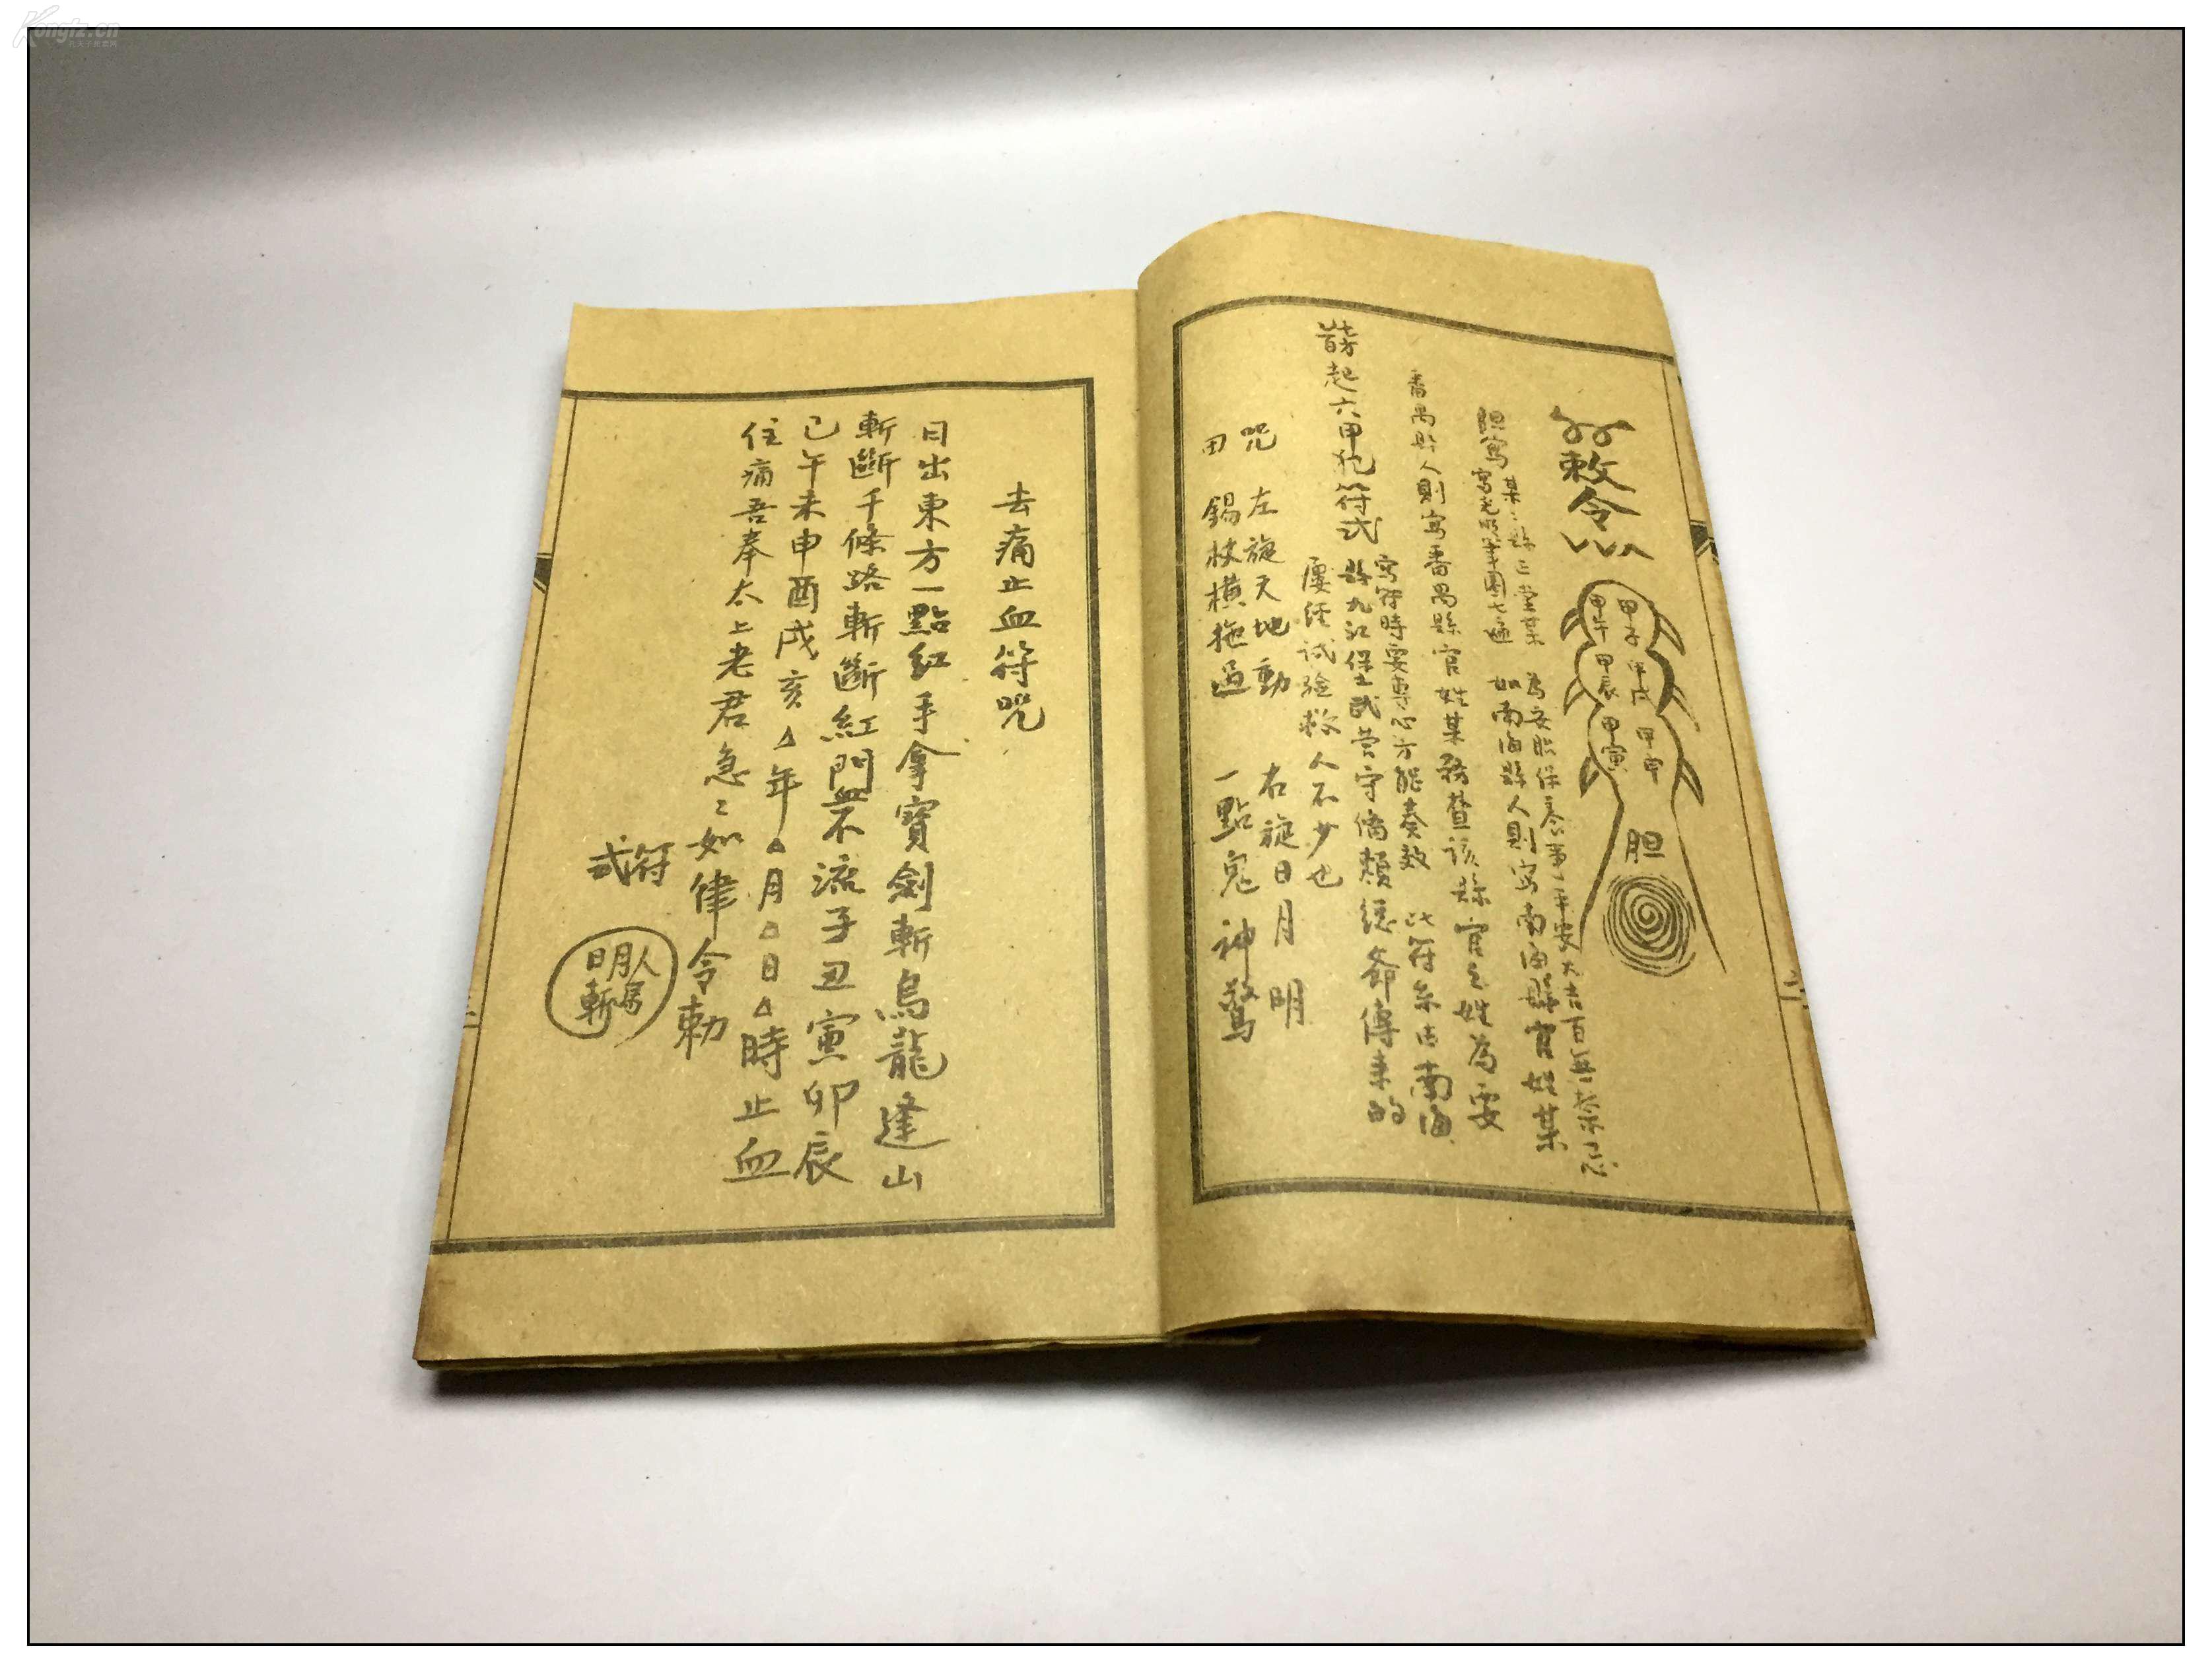 敕令
甲子
甲午
甲戌
甲辰
甲申
甲寅
胆
為安胎保 平安大吉百無禁忌
如南海縣人則寫南海縣官姓某
番禺縣人則寫番禺縣官姓某務查該縣官之姓為要
寫符時要專心方能奏效 此符系古南海
縣九江保土武營守備賴總爺傳來的
起六甲犯符式
屢經試验救人不少也
咒 左旋天地動 右旋日月明
田 錫杖橫拖過 一點鬼神驚
去痛止血符咒
日出東方一點紅手拿寶劍斬烏龍逢山
斬斷千條路斬斷紅門血不流子丑寅卯辰
已午未申酉戌亥△年△月△日△時止血
住痛吾奉太上老君急〻如律令勅
符式
人月明日斬
Kongfz.cn